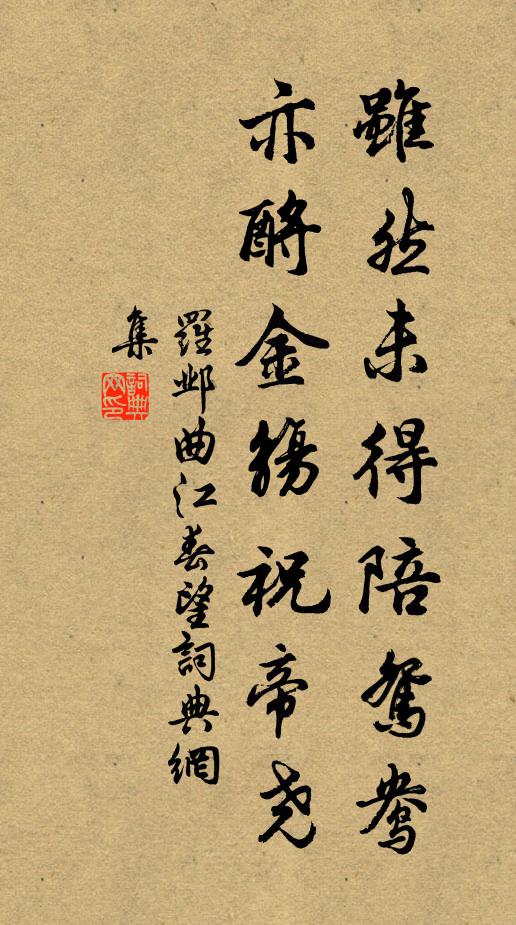 雖然未得陪鴛鴦
亦酹金觴祝帝尧
羅邺曲江春望詞典網
集
詞典
网印